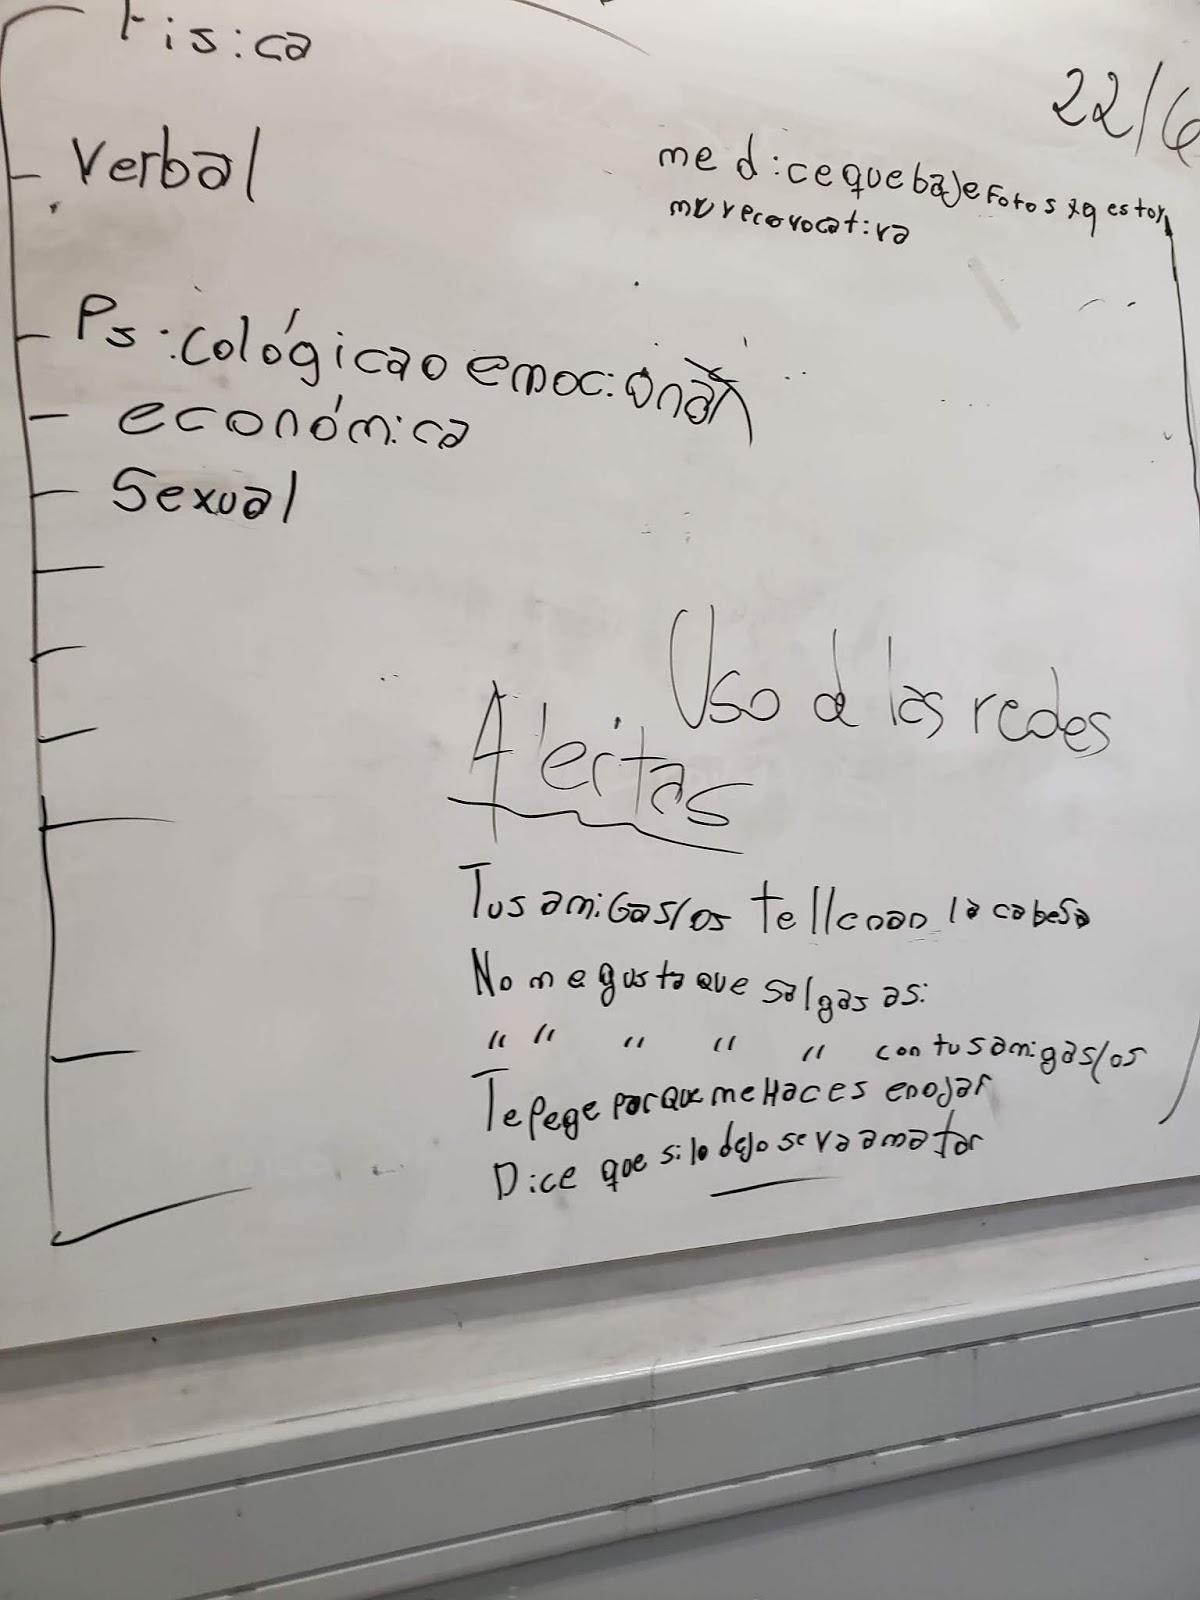 Fisica
22/6
Verbal
me dice que baje fotos xq estoy
muy
Psicológica o emocional
económica
Sexual
Uso d las redes
Alertas
Tus amigas/os te llenan la cabesa
No me gusta que salgas asi
" " " " " con tus amigas/os
Te pege porque me Haces enojar
Dice que si lo dejo se va a matar